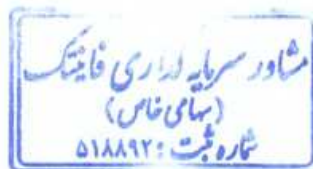 مشاور سرمایه گذاری فاینتک
(سهامی خاص)
شماره ثبت: ۵۱۸۸۹۲